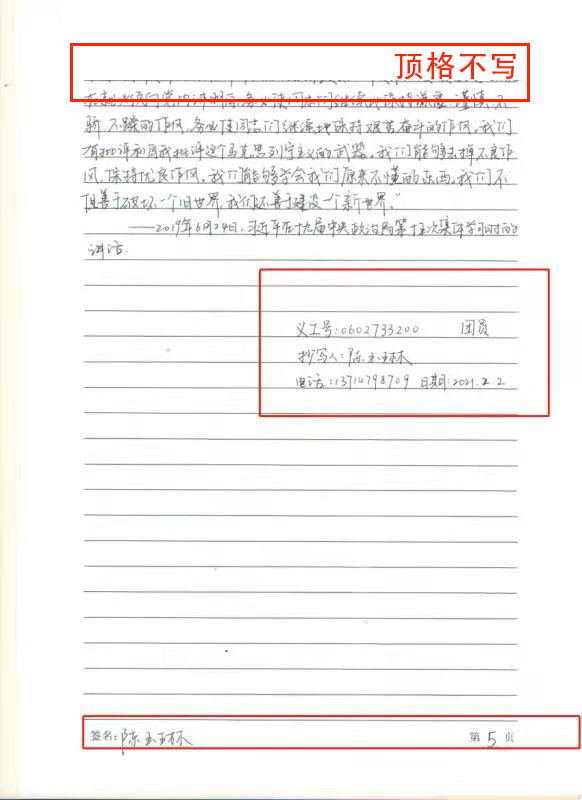 顶格不写
务必使同志们继续地保持谦虚、谨慎、不
骄、不躁的作风,务必使同志们继续地保持艰苦奋斗的作风。我们
有批评和自我批评这个马克思列宁主义的武器。我们能够去掉不良作
风,保持优良作风。我们能够学会我们原来不懂的东西。我们不
但善于破坏一个旧世界,我们还善于建设一个新世界。”
——2019年6月24日,习近平在十九届中央政治局第十五次集体学习时的
讲话.
义工号:0602733200 团员
抄写人:陈玉琳
电话:13714798709 日期:2021.2.2
签名:陈玉琳 第5页